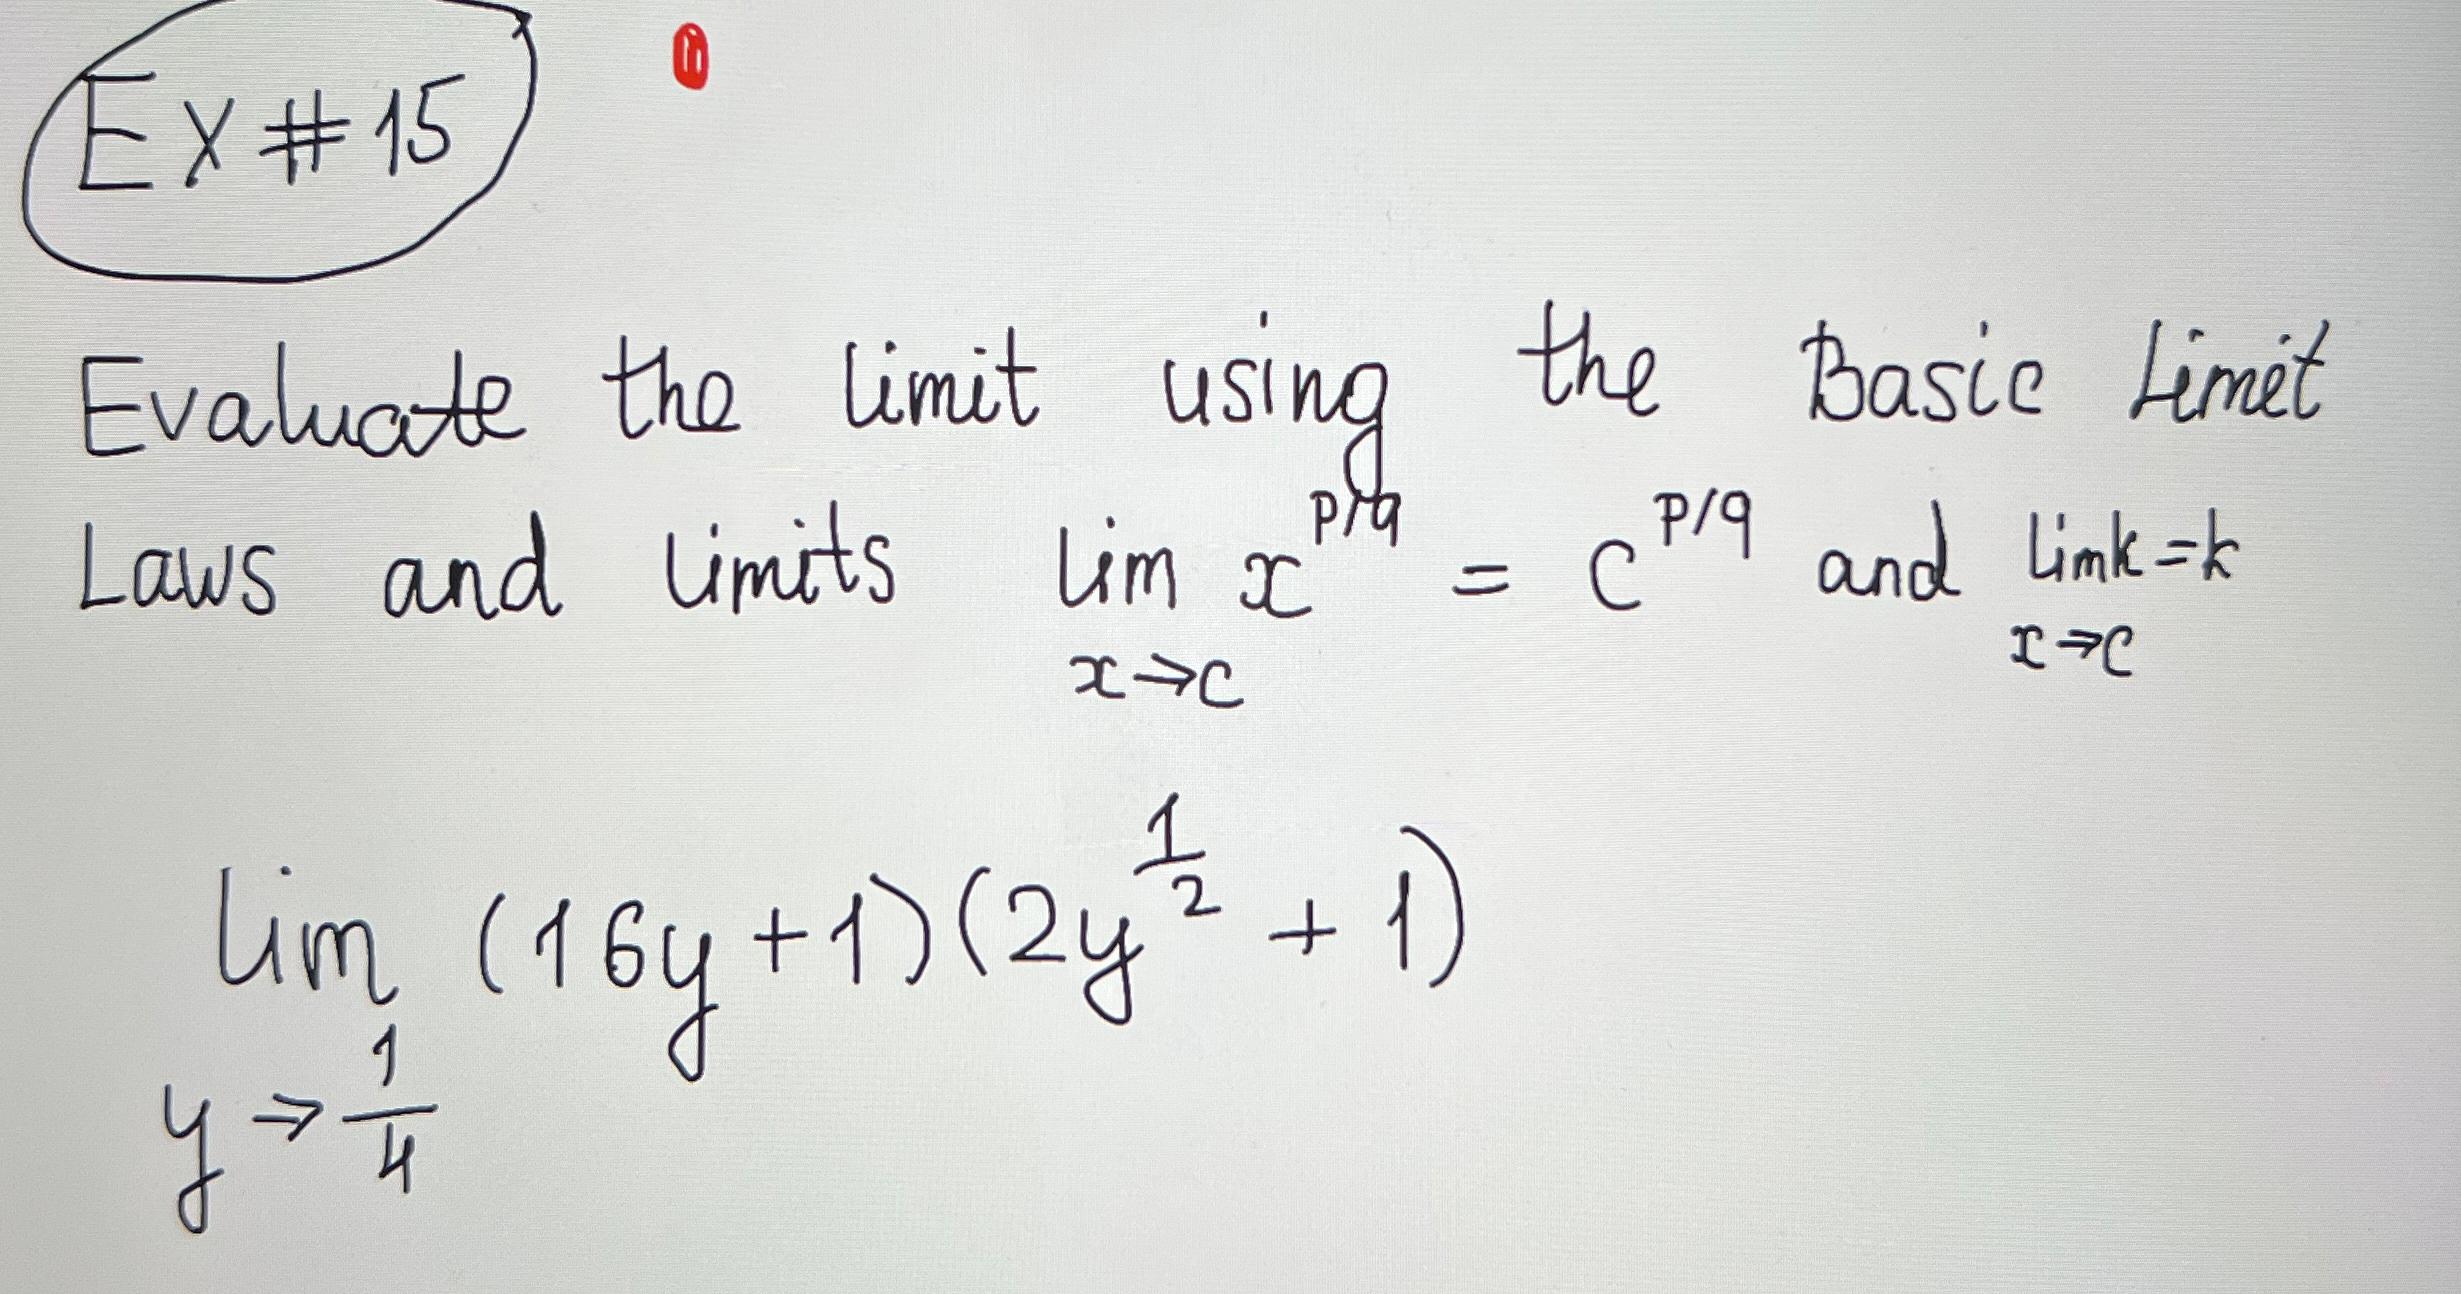 Ex # 15
Evaluate the limit using the Basic Limit
Laws and limits lim x^{p/q} = c^{p/q} and lim k = k
x→c x→c
lim (16y + 1)(2y^{1/2} + 1)
y→1/4